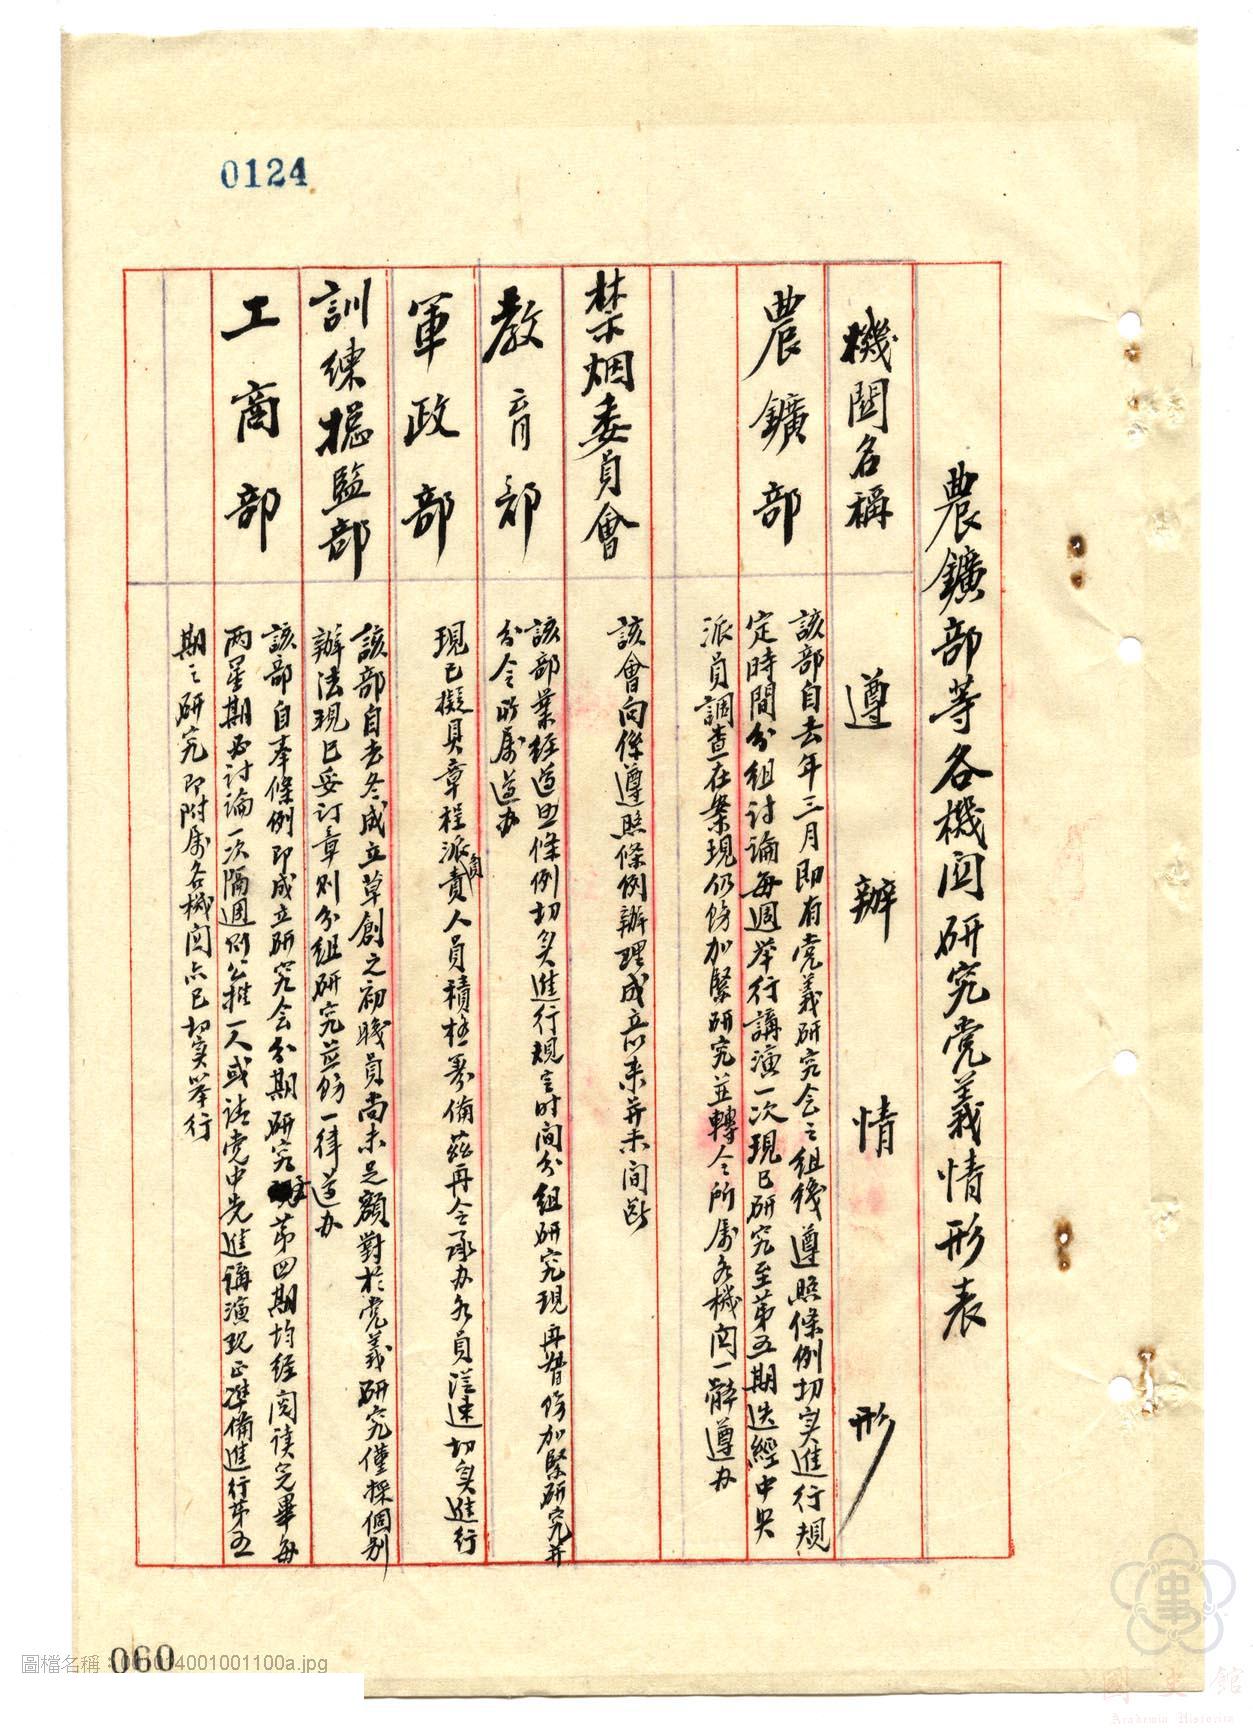 0124
農鑛部等各機関研究党義情形表
機関名稱
遵辦情形
農鑛部
該部自去年三月即有党義研究会之組織遵照條例切実進行規
定時間分組討論每週举行講演一次現已研究至第五期迭經中央
派員調查在案現仍飭加緊研究並轉令所属各機関一體遵办
禁烟委員會
該會向係遵照條例辦理成立以来并未间断
教育部
該部業经遵照條例切实進行规定时间分组研究现再督飭加緊研究并
分令所属遵办
軍政部
現已擬具章程派負責人員積極筹備兹再令承办各員從速切实進行
訓練摠監部
該部自去冬成立草創之初職員尚未足額對於党義研究僅採個别
辦法現已妥订章则分组研究并飭一律遵办
工商部
該部自奉條例即成立研究会分期研究至第四期均经阅读完畢每
两星期必讨論一次隔週则公推一人或请党中先進講演现正準備進行第五
期之研究即附属各機関亦已切实举行
060
圖檔名稱：001014001001100a.jpg
國史館
Academia Historica